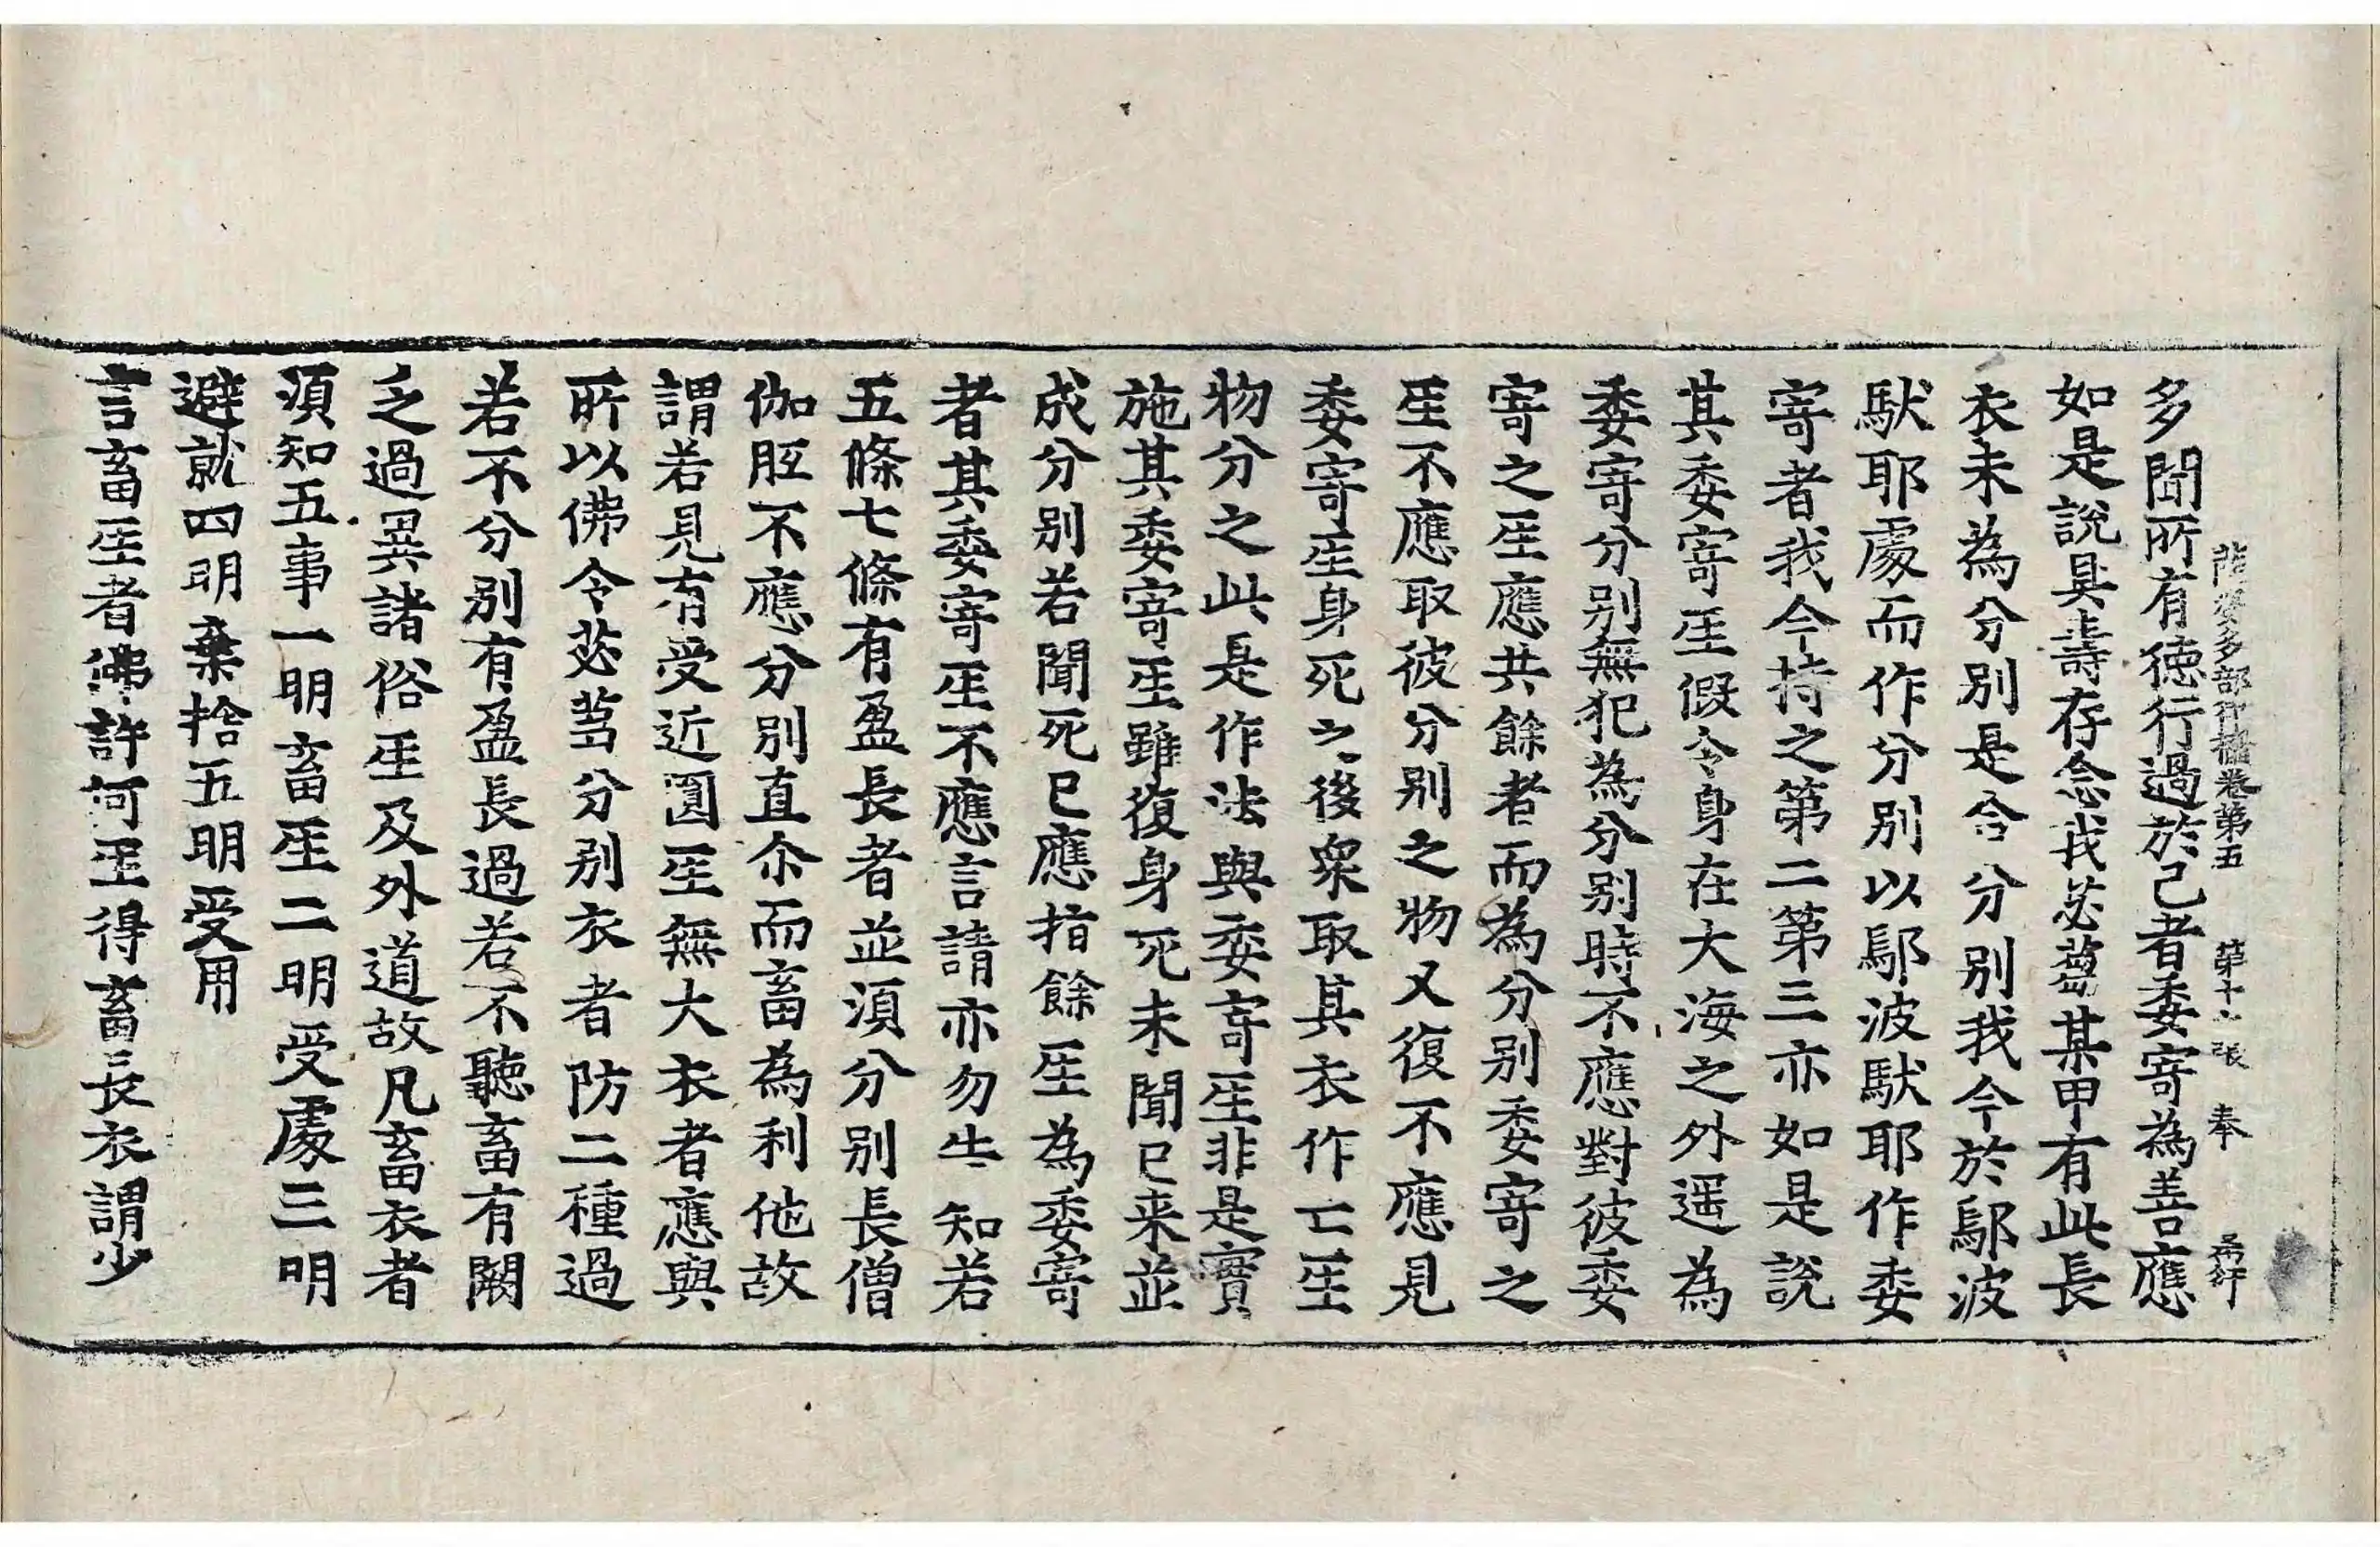 薩婆多部律攝卷第五 第十 張 奉
多聞所有德行過於己者委寄為善應
如是說具壽存念我苾蒭某甲有此長
衣未為分別是合分別我今於鄔波
馱耶處而作分別以鄔波馱耶作委
寄者我今持之第二第三亦如是說
其委寄𤯔假令身在大海之外遥為
委寄分別無犯為分別時不應對彼委
寄之𤯔應共餘者而為分別委寄之
𤯔不應取彼分別之物又復不應見
委寄𤯔身死之後衆取其衣作亡𤯔
物分之此是作法與委寄𤯔非是實
施其委寄𤯔雖復身死未聞已来並
成分別若聞死已應指餘𤯔為委寄
者其委寄𤯔不應言請亦勿生知若
五條七條有盈長者並須分別長僧
伽胝不應分別直尒而畜為利他故
謂若見有受近圓𤯔無大衣者應與
所以佛令苾蒭分別衣者防二種過
若不分別有盈長過若不聽畜有闕
乏過異諸俗𤯔及外道故凡畜衣者
須知五事一明畜𤯔二明受處三明
避就四明棄捨五明受用
言畜𤯔者佛許何𤯔得畜長衣謂少